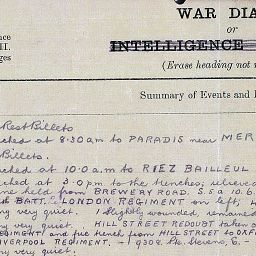 WAR DIA
or
INTELLIGENCE
nce
II.
(Erase heading not
ges
Summary of Events and
Rest Billets
ched at 8.30 am to PARADIS near MER
Billets.
ched at 10.0 a.m to RIEZ BAILLEUL
ched at 2.0 pm to the trenches; relieved
ine held from BREWERY ROAD. S.5.a 10.6
BATT. LONDON REGIMENT on left, 4
ny very quiet. 1 slightly wounded, remained
ny very quiet. HILL STREET REDOUBT taken o
EGIMENT) and fire trench from HILL STREET to OXF
IVERPOOL REGIMENT. - 1 9308. Pte Stevens, G. -
ny very quiet.